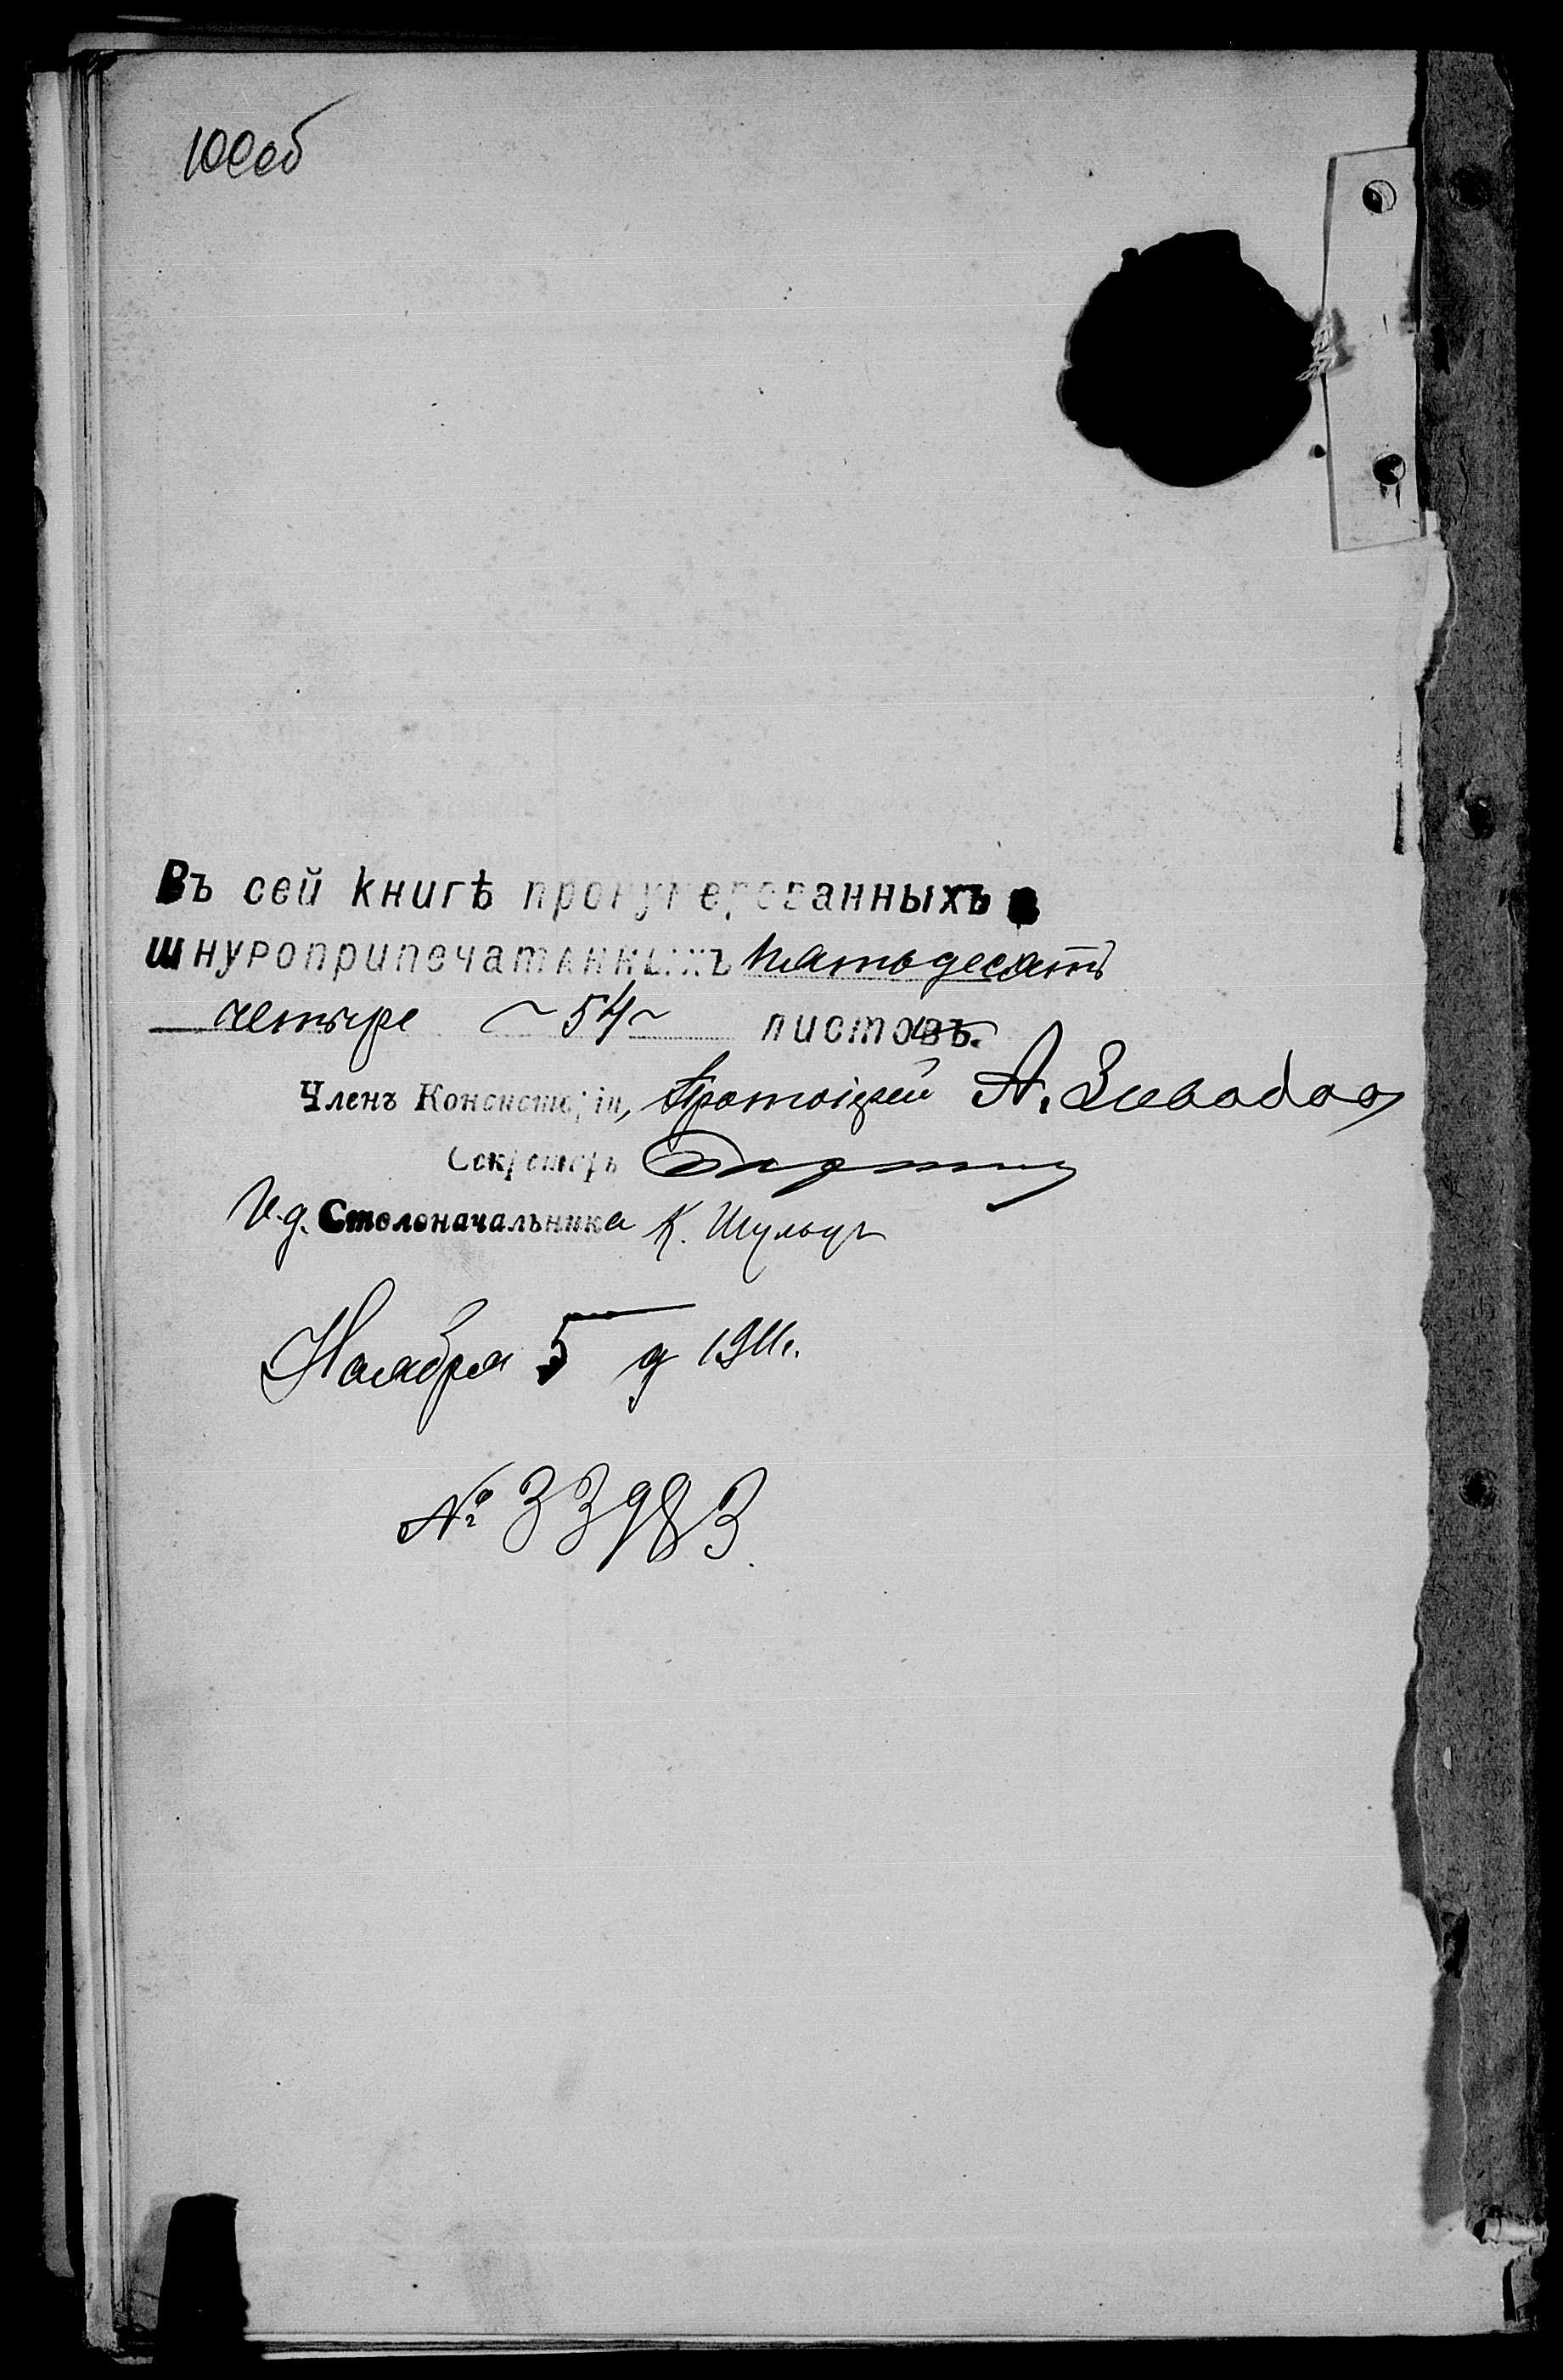 100об
Въ сей книгѣ пронумерованныхъ и
шнуроприпечатанныхъ пятьдесятъ
четыре ~ 54 ~ листовъ.
Членъ Консисторіи, Протоіерей А.
Секретарь
И.д. Столоначальника К. Шульцъ
Ноября 5 д 1911г.
№ 33983.